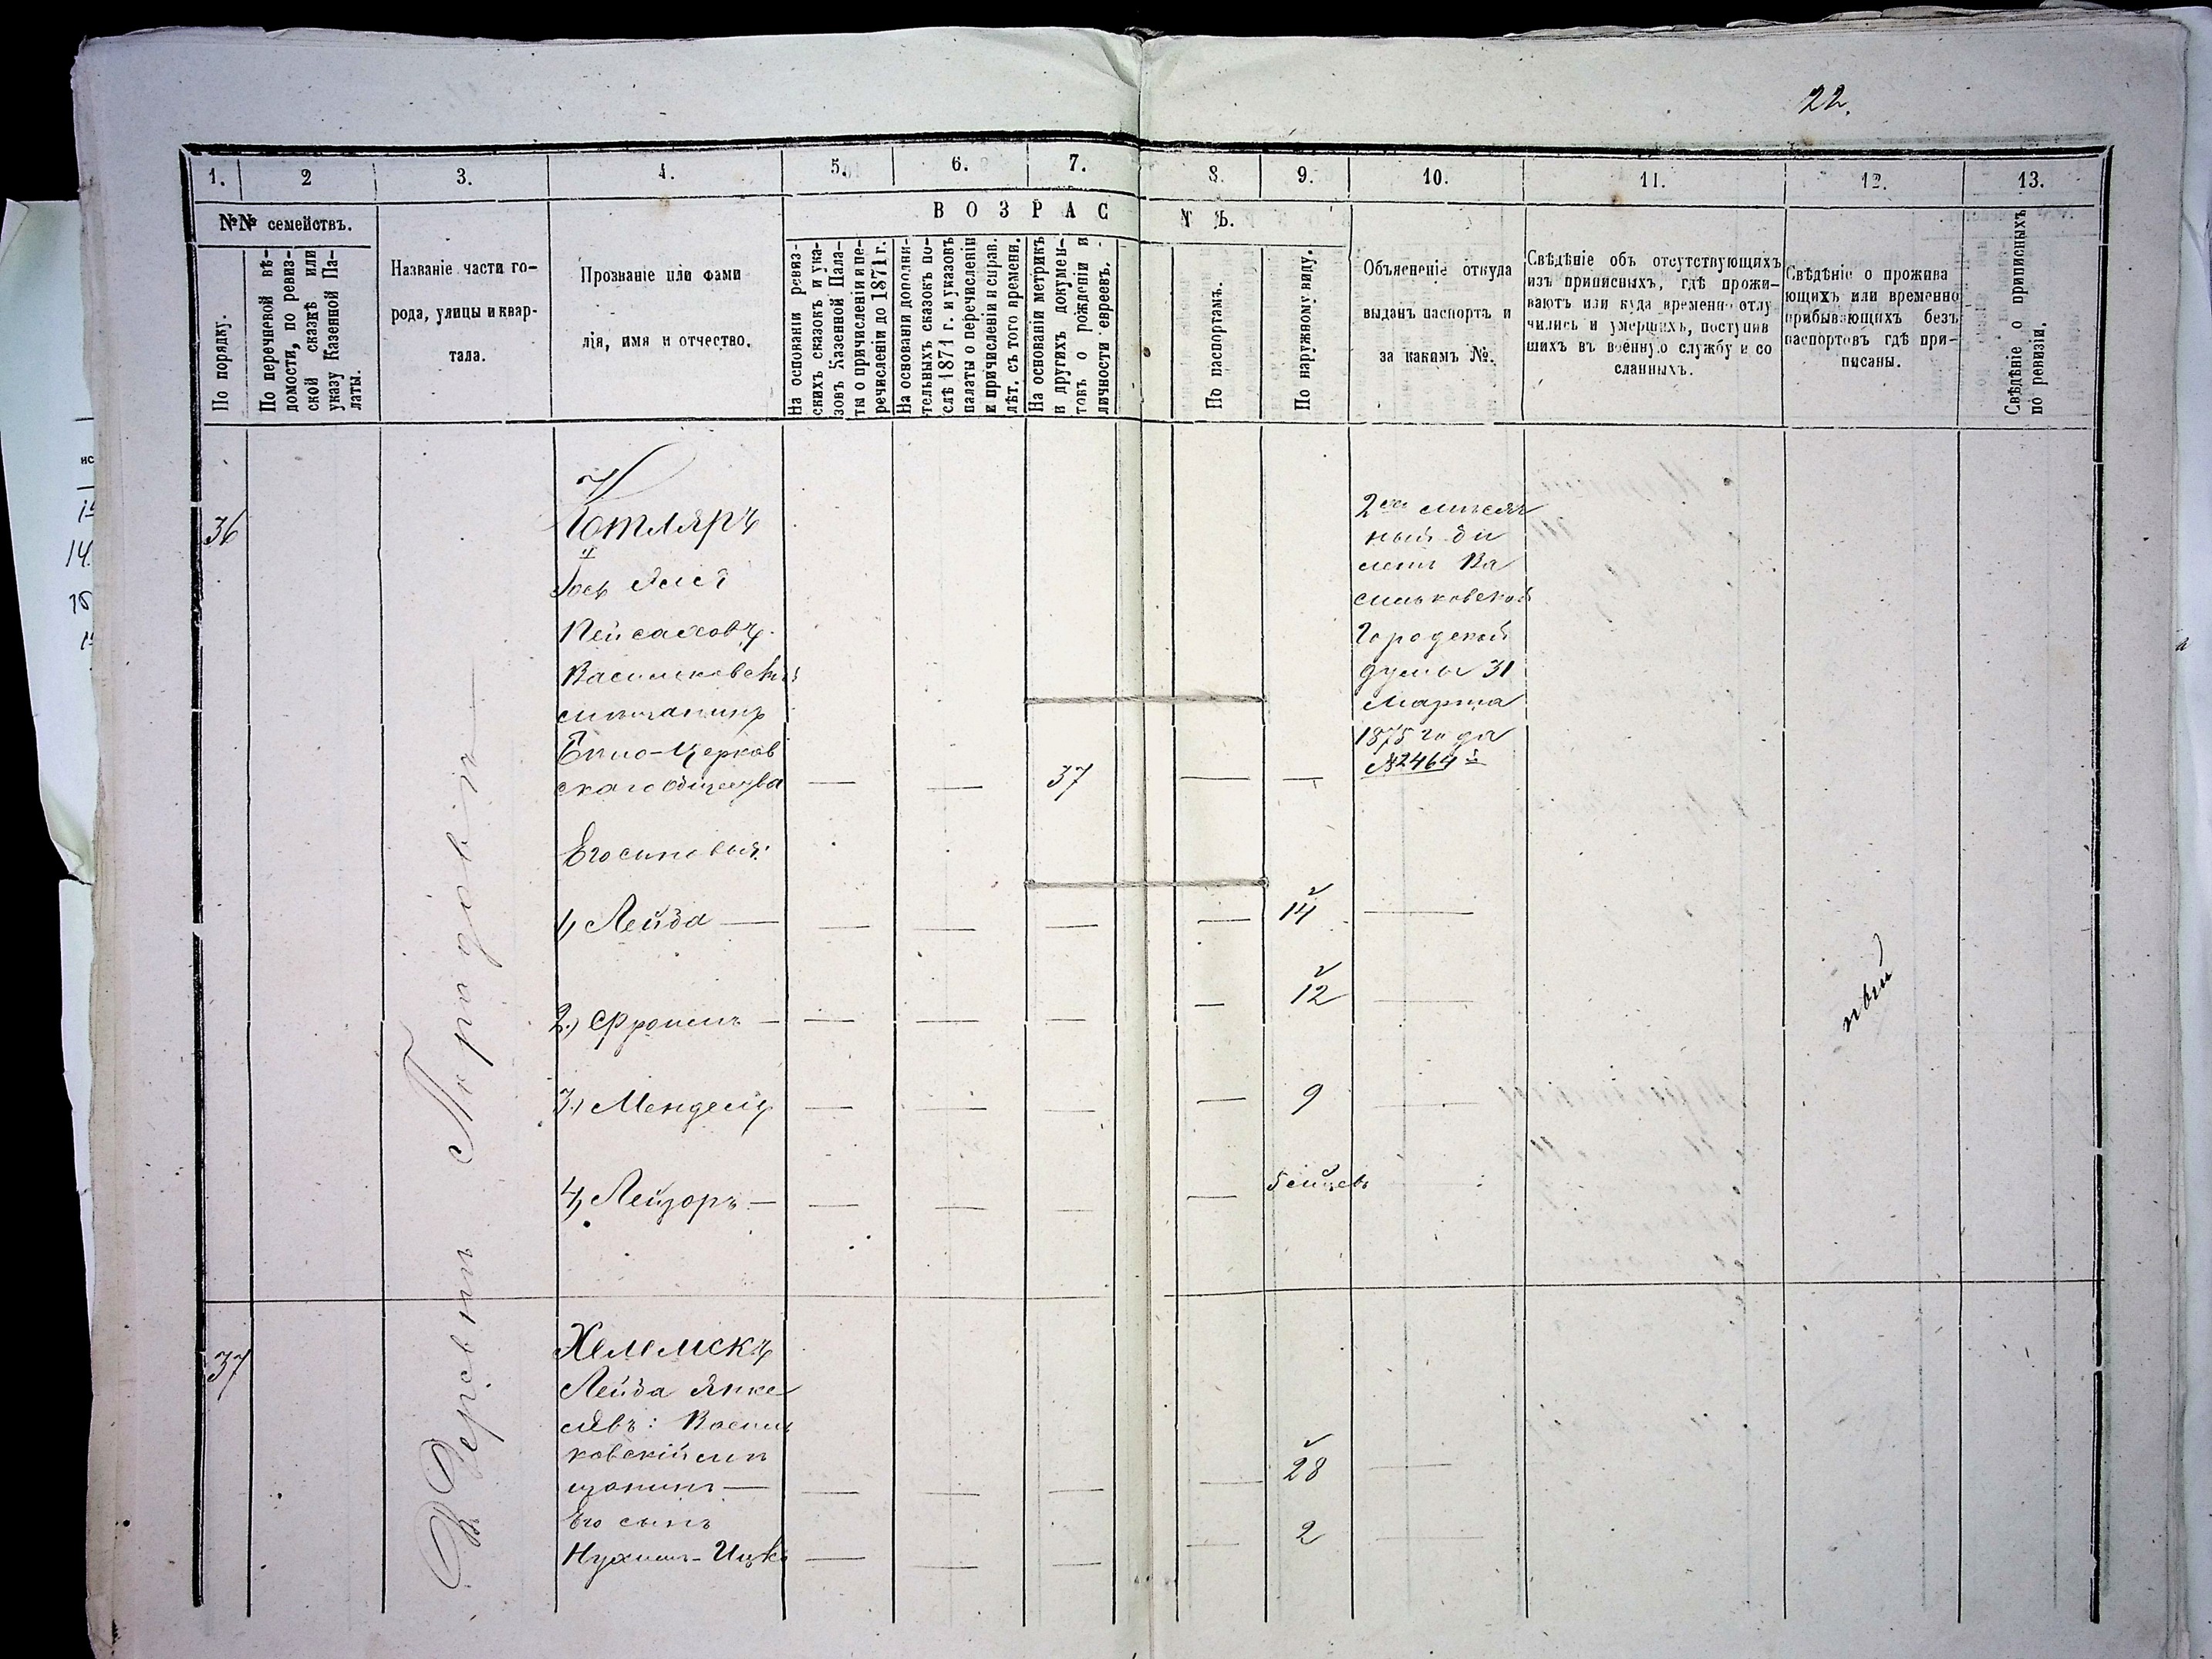 22.
1. 2 3. 4. 5. 6. 7. 8. 9. 10. 11. 12. 13.
№№ семействъ.
По порядку.
По перечневой вѣ-
домости, по ревиз-
ской сказкѣ или
указу Казенной Па-
латы.
Названіе части го-
рода, улицы и квар-
тала.
Прозваніе или фами
лія, имя и отчество.
ВОЗРАСТЪ.
На основаніи ревиз-
скихъ сказокъ и ука-
зовъ Казенной Пала-
ты о причисленіи и пе-
речисленіи до 1871 г.
На основаніи дополни-
тельныхъ сказокъ по-
слѣ 1871 г. и указовъ
палаты о перечисленіи
и причисленіи и справ.
лѣт. съ того времени.
На основаніи метрикъ
и другихъ докумен-
товъ о рожденіи и
личности евреевъ.
По паспортамъ.
По наружному виду.
Объясненіе откуда
выданъ паспортъ и
за какимъ №.
Свѣдѣніе объ отсутствующихъ
изъ приписныхъ, гдѣ прожи-
ваютъ или куда временно отлу
чились и умершихъ, поступив
шихъ въ военную службу и со
сланныхъ.
Свѣдѣніе о прожива
ющихъ или временно
прибывающихъ безъ
паспортовъ гдѣ при-
писаны.
Свѣдѣніе о приписныхъ
по ревизіи.
36
Котляръ
Пейсаховъ
Васильковскій
мѣщанинъ
Бѣло-Церков
скаго общества
— — 37 — —
городской
думы 31
Марта
1875 года
№ 2464
Его сыновья:
1) Лейба — — — — — 14 —
2) Фроимъ — — — — — 12 —
3) Мендель — — — — 9 —
4) Лейзоръ — — — — —
37
Лейба Янке
левъ: Василь
ковскій мѣ
щанинъ — — — — — 28 —
Его сынъ
Нухимъ-Ицко — — — — 2 —